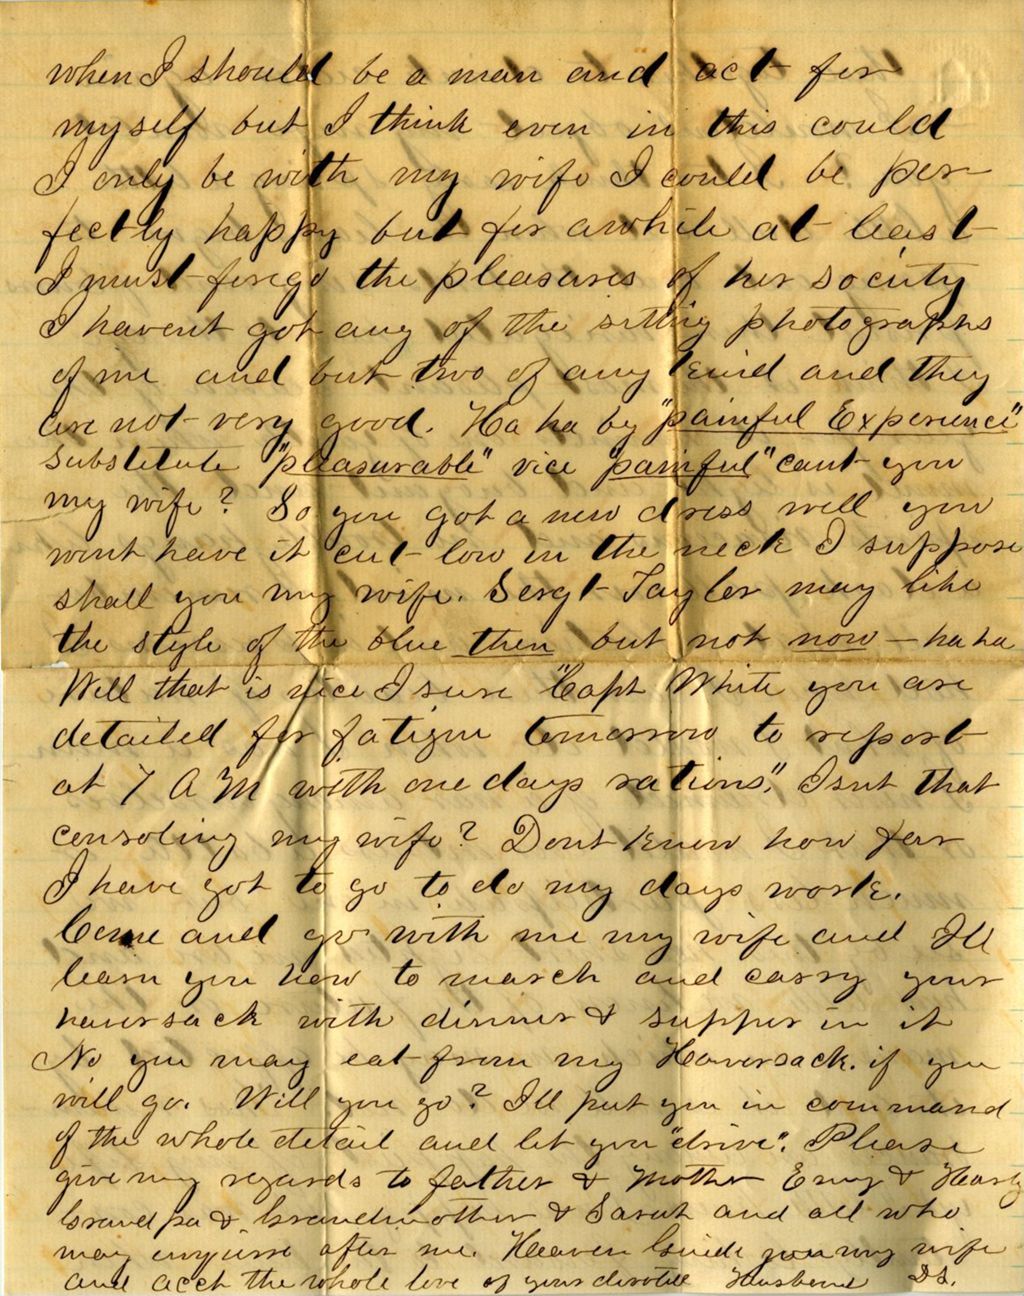 when I should be a man and act for
myself but I think even in this could
I only be with my wife I could be per
fectly happy but for awhile at least
I must forego the pleasures of her society
I havent got any of the sitting photographs
of me and but two of any kind and they
are not very good. Ha ha by "painful Experience"
substitute "pleasurable" vice "painful" cant you
my wife? So you got a new dress well you
wont have it cut low in the neck I suppose
shall you my wife. Sergt Taylor may like
the style of the blue then but not now — ha ha
Well that is nice I sure "Capt White you are
detailed for fatigue tomorrow to report
at 7 A M with one days rations". Isnt that
consoling my wife? Dont know how far
I have got to go to do my days work.
Come and go with me my wife and Ill
learn you how to march and carry your
haversack with dinner & supper in it
No you may eat from my Haversack. if you
will go. Will you go? Ill put you in command
of the whole detail and let you "drive". Please
give my regards to father & Mother &
Grandpa & Grandmother & Sarah and all who
may enquire after me. Heaven Guide you my wife
and acct the whole love of your devoted Husband